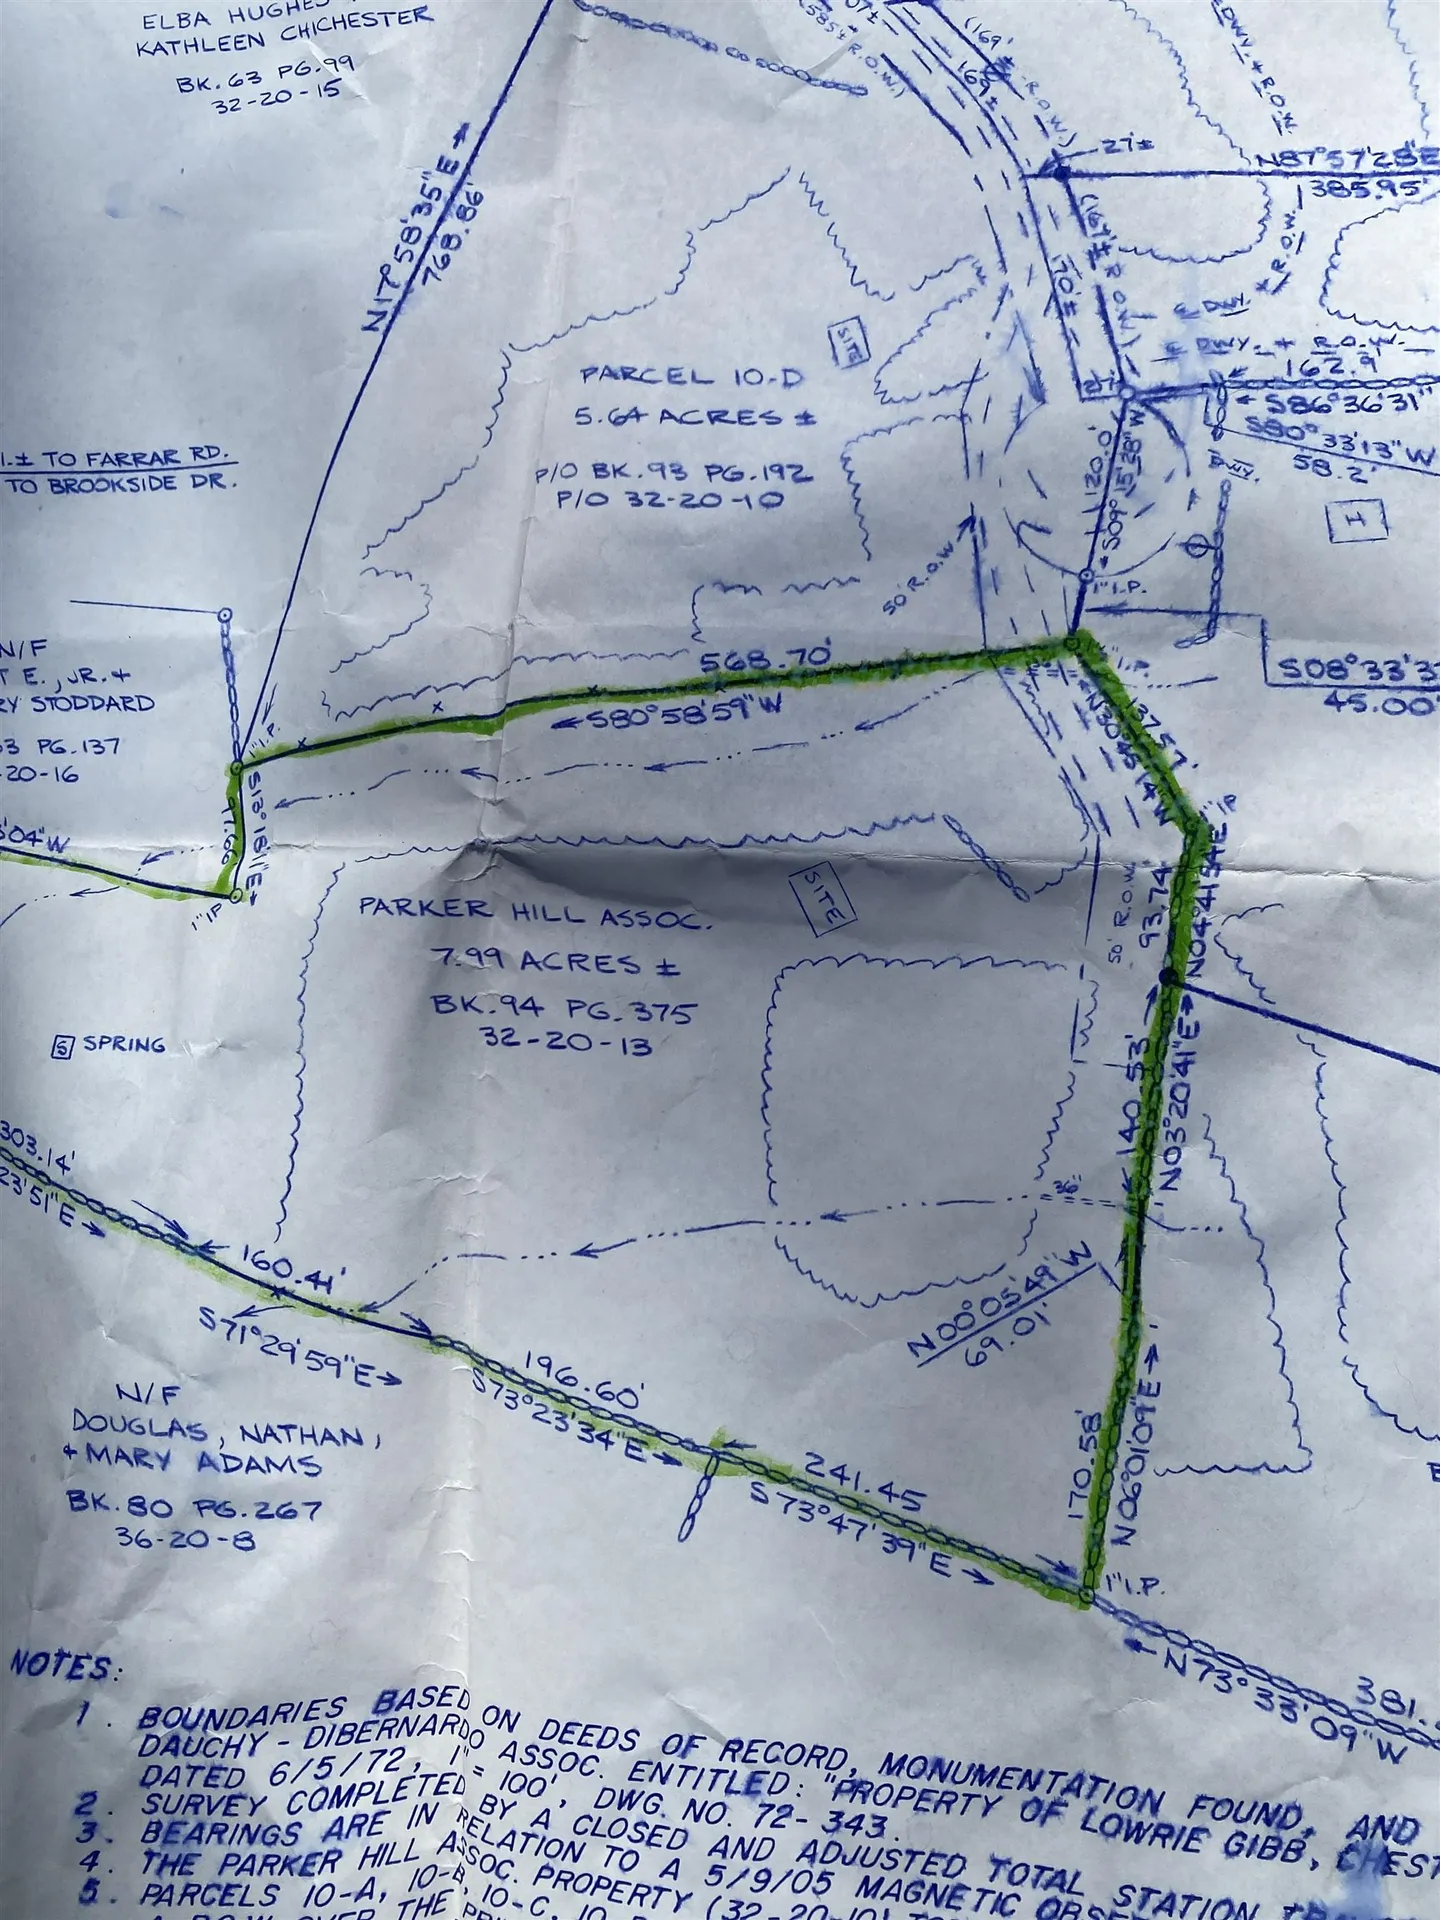 ELBA HUGHES
KATHLEEN CHICHESTER
BK. 63 PG. 99
32-20-15
N17°58'35"E →
768.86'
(585± R.O.W.)
(169'± R.O.W.)
169±
DWY. & R.O.W.
27±
N87°57'28"E
385.95'
R.O.W.
170'±
℄ DWY.
℄ DWY. & R.O.W.
162.9'
← S86°36'31"
S80°33'13"W
58.2'
DWY.
SITE
PARCEL 10-D
5.64 ACRES ±
P/O BK. 93 PG. 192
P/O 32-20-10
120.0'
S09°15'38"W
H
50' R.O.W.
1" I.P.
± TO FARRAR RD.
TO BROOKSIDE DR.
N/F
T E., JR. &
RY STODDARD
3 PG. 137
-20-16
'04"W
568.70'
← S80°58'59"W
1" I.P.
S08°33'3
45.00'
137.57'
N30°45'14"W
1" I.P.
97.66'
S12°18'11"E →
1" I.P.
1" IP
93.74'
N04°41'54"E
50' R.O.W.
SITE
PARKER HILL ASSOC.
7.99 ACRES ±
BK. 94 PG. 375
32-20-13
S SPRING
140.53'
N03°20'41"E →
36"
303.14'
23'51"E →
160.41'
S71°29'59"E →
N00°05'49"W
69.01'
196.60'
S73°23'34"E →
170.58'
N06°01'09"E →
241.45
S73°47'39"E →
1" I.P.
← N73°33'09"W
381.
N/F
DOUGLAS, NATHAN,
& MARY ADAMS
BK. 80 PG. 267
36-20-8
NOTES:
1. BOUNDARIES BASED ON DEEDS OF RECORD, MONUMENTATION FOUND, AND
DAUCHY - DIBERNARDO ASSOC. ENTITLED: "PROPERTY OF LOWRIE GIBB, CHEST
DATED 6/5/72, 1" = 100', DWG. NO. 72-343.
2. SURVEY COMPLETED BY A CLOSED AND ADJUSTED TOTAL STATION
3. BEARINGS ARE IN RELATION TO A 5/9/05 MAGNETIC OBSE
4. THE PARKER HILL ASSOC. PROPERTY (32-20-10)
5. PARCELS 10-A, 10-B, 10-C, 10-D
A R.O.W. OVER THE